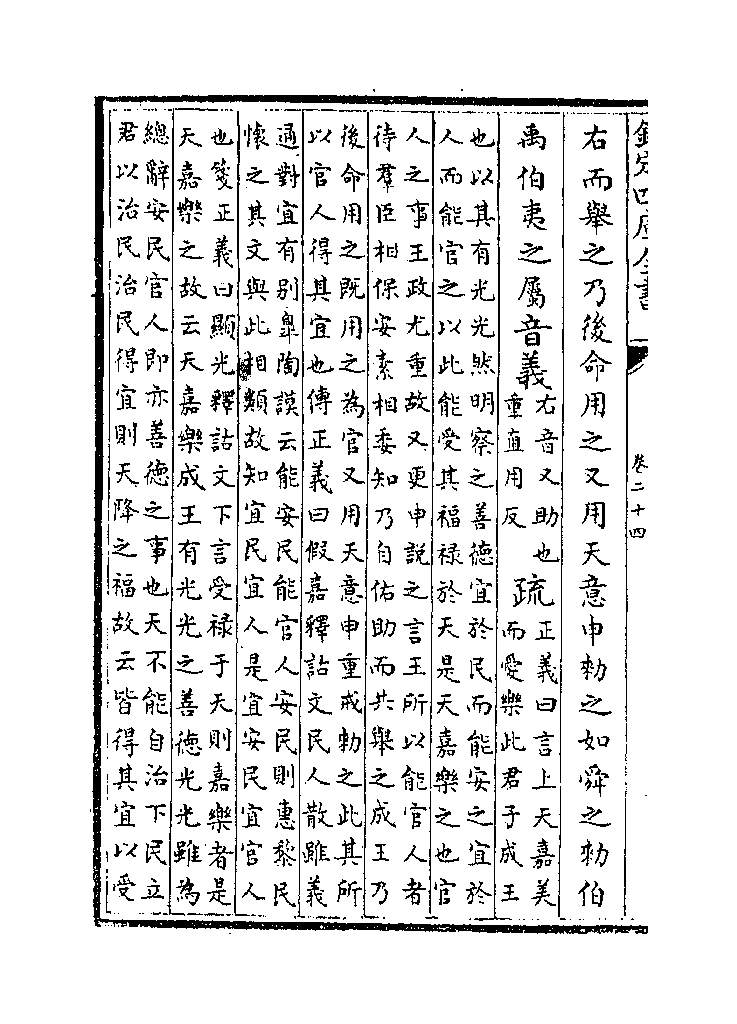 欽定四庫全書
卷二十四
右而舉之乃後命用之又用天意申勑之如舜之勑伯
禹伯夷之屬音義
右音又助也
重直用反
疏
正義曰言上天嘉美
而愛樂此君子成王
也以其有光光然明察之善德宜於民而能安之宜於
人而能官之以此能受其福禄於天是天嘉樂之也官
人之事王政尤重故又更申說之言王所以能官人者
待羣臣相保安素相委知乃自佑助而共舉之成王乃
後命用之既用之為官又用天意申重戒勑之此其所
以官人得其宜也傳正義曰假嘉釋詁文民人散雖義
通對宜有别臯陶謨云能安民能官人安民則惠黎民
懷之其文與此相類故知宜民宜人是宜安民宜官人
也箋正義曰顯光釋詁文下言受禄于天則嘉樂者是
天嘉樂之故云天嘉樂成王有光光之善德光光雖為
總辭安民官人即亦善德之事也天不能自治下民立
君以治民治民得宜則天降之福故云皆得其宜以受